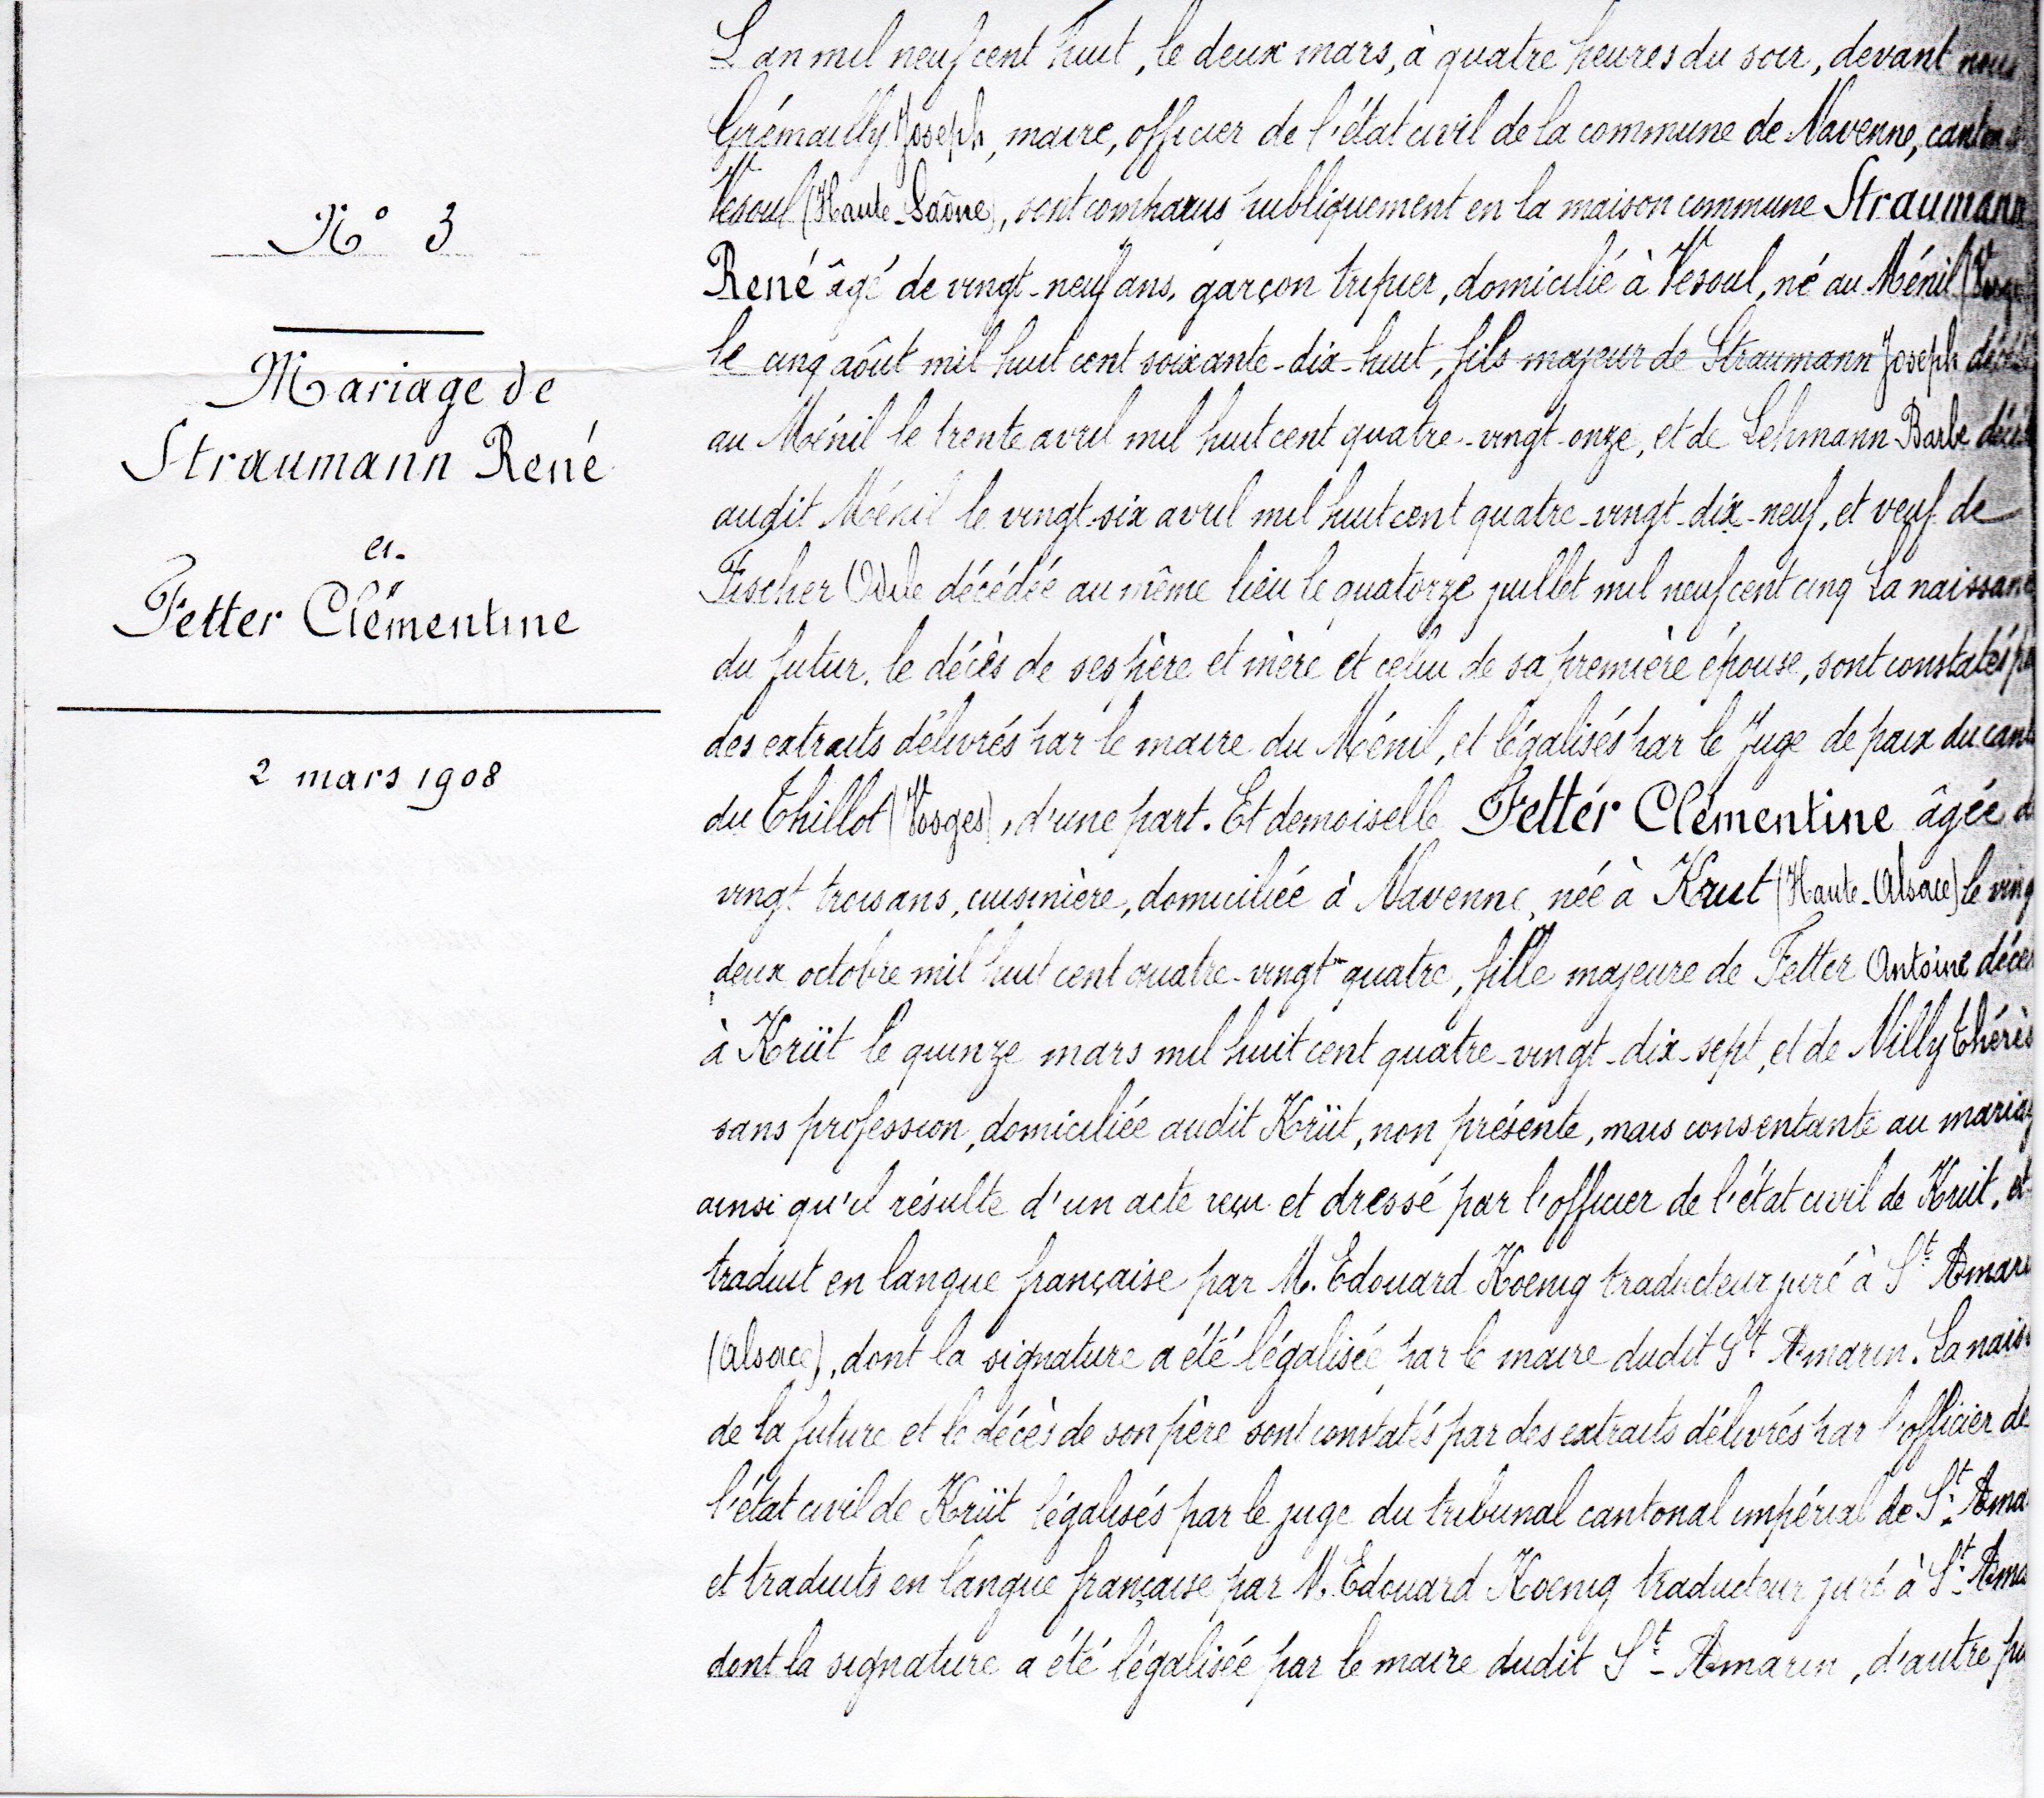 N° 3
Mariage de
Straumann René
et
Fetter Clémentine
2 mars 1908
L'an mil neuf cent huit, le deux mars, à quatre heures du soir, devant nous
Grémailly Joseph, maire, officier de l'état civil de la commune de Navenne, canton
Vesoul (Haute-Saône), sont comparus publiquement en la maison commune Straumann
René âgé de vingt-neuf ans, garçon tripier, domicilié à Vesoul, né au Ménil (Vosges
le cinq août mil huit cent soixante-dix-huit, fils majeur de Straumann Joseph décédé
au Ménil le trente avril mil huit cent quatre-vingt-onze, et de Lehmann Barbe
audit Ménil le vingt-six avril mil huit cent quatre-vingt-dix-neuf, et veuf de
Fischer Odile décédée au même lieu le quatorze juillet mil neuf cent cinq La naissance
du futur, le décès de ses père et mère et celui de sa première épouse, sont constatés pa
des extraits délivrés par le maire du Ménil, et légalisés par le Juge de paix du cant
du Thillot (Vosges), d'une part. Et demoiselle Fetter Clémentine âgée d
vingt trois ans, cuisinière, domiciliée à Navenne, née à Krut (Haute-Alsace) le ving
deux octobre mil huit cent quatre-vingt-quatre, fille majeure de Fetter Antoine décé
à Krüt le quinze mars mil huit cent quatre-vingt-dix-sept, et de Nilly Thérès
sans profession, domiciliée audit Krüt, non présente, mais consentante au mariag
ainsi qu'il résulte d'un acte reçu et dressé par l'officier de l'état civil de Krüt, et
traduit en langue française par M. Edouard Koenig traducteur juré à St Amari
(Alsace), dont la signature a été légalisée par le maire dudit St Amarin. La naiss
de la future et le décès de son père sont constatés par des extraits délivrés par l'officier de
l'état civil de Krüt légalisés par le juge du tribunal cantonal impérial de St Ama
et traduits en langue française par M. Edouard Koenig traducteur juré à St Ama
dont la signature a été légalisée par le maire dudit St-Amarin, d'autre pa